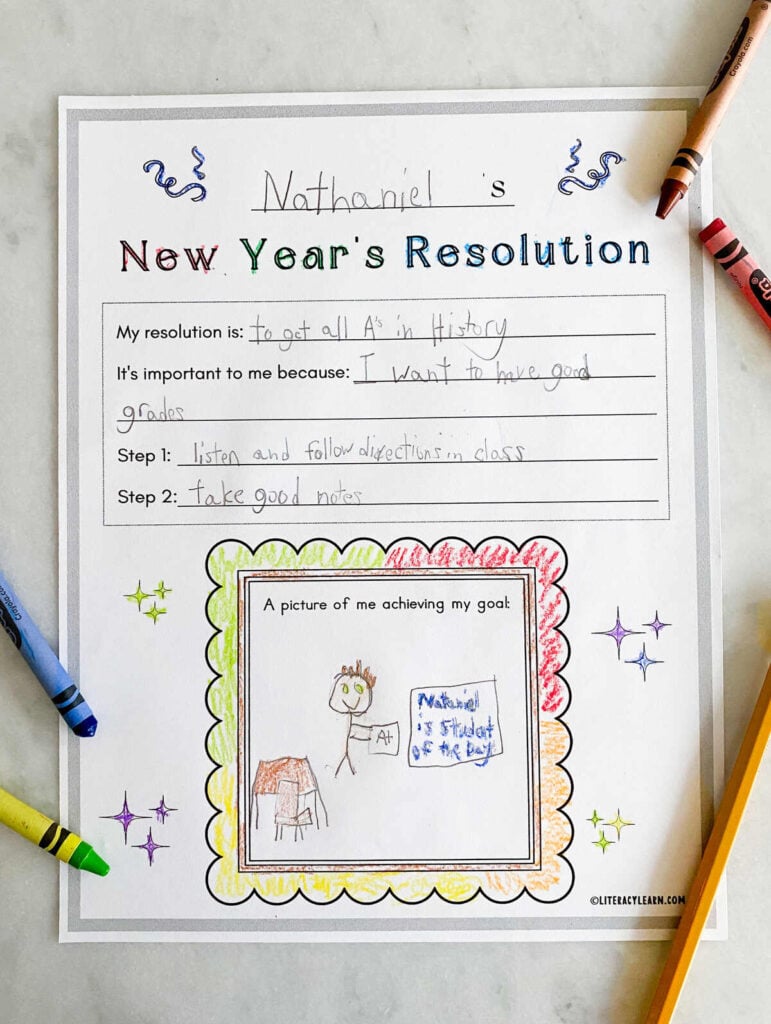 Nathaniel 's
New Year's Resolution
My resolution is: to get all A's in History
It's important to me because: I want to have good
grades
Step 1: listen and follow directions in class
Step 2: take good notes
A picture of me achieving my goal:
A+
Nataniel
is Student
of the Day
©LITERACYLEARN.COM
Crayola.com
Crayola.com